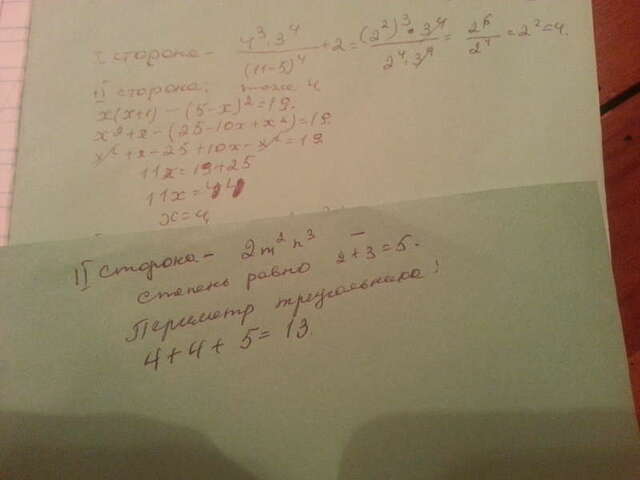 I сторона - 4³·3⁴/(11-5)⁴ + 2 = (2²)³·3⁴/2⁴·3⁴ = 2⁶/2⁴ = 2² = 4.
II сторона: тоже 4
x(x+1) - (5-x)² = 19.
x² + x - (25 - 10x + x²) = 19.
x² + x - 25 + 10x - x² = 19
11x = 19 + 25
11x = 44
x = 4
II сторона - 2m²n³
Степень равно 2+3=5.
Периметр треугольника:
4+4+5=13